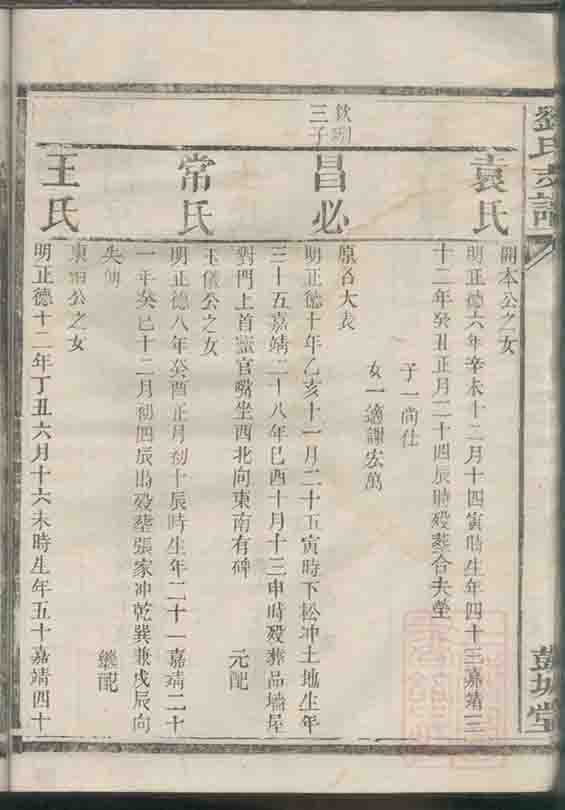 劉氏支譜
彭城堂
袁氏
開本公之女
明正德六年辛未十二月十四寅時生年四十三嘉靖三
十二年癸丑正月二十四辰時歿葬合夫塋
子一尚仕
女一適謝宏萬
欽琍
三子
昌必
原名大表
明正德十年乙亥十一月二十五寅時下松冲土地生年
三十五嘉靖二十八年己酉十月十三申時歿葬品墻屋
對門上首鷰官嘴坐西北向東南有碑
元配
常氏
玉儀公之女
明正德八年癸酉正月初十辰時生年二十一嘉靖二十
一年癸巳十二月初四辰時歿葬張家冲乾巽兼戌辰向
失傳
繼配
王氏
公之女
明正德十二年丁丑六月十六未時生年五十嘉靖四十